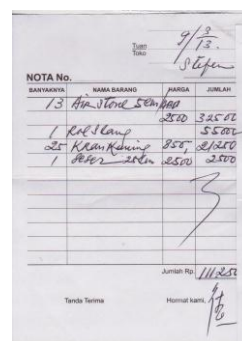 9/3/13.
Tuan
Toko
Stefen
NOTA No.
BANYAKNYA NAMA BARANG HARGA JUMLAH
13 Air Stone 5cm
2500 32500
1 Rol Slang 55000
25 Kran Kuning 850, 21250
1 Seser 25cm 2500 2500
Jumlah Rp. 111250
Tanda Terima Hormat kami,